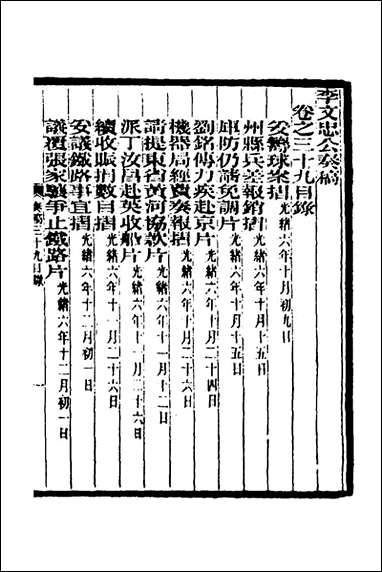 李文忠公奏稿
卷之三十九目錄
妥籌球案摺光緒六年十月初九日
州縣兵差報銷摺光緒六年十月十五日
車防仍請免調片光緒六年十月十五日
劉銘傳力疾赴京片光緒六年十月二十四日
機器局經費奏報摺光緒六年十月二十六日
請提東省黃河協款片光緒六年十一月十二日
派丁汝昌赴英收船片光緒六年十一月二十六日
續收賑捐數目摺光緒六年十一月二十六日
妥議鐵路事宜摺光緒六年十二月初一日
議覆張家驤爭止鐵路片光緒六年十二月初一日
奏稿三十九目錄